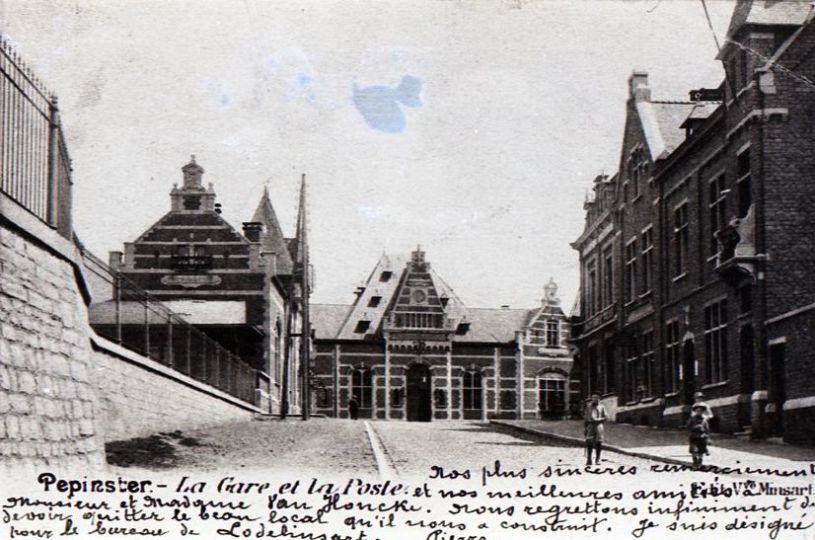 Nos plus sincères remerciements
Pepinster. - La Gare et la Poste. et nos meilleures amitiés à Vve Minsart.
Monsieur et Madame Van Honcke. Nous regrettons infiniment de
devoir quitter le beau local qu'il nous a construit. Je suis désigné
pour le bureau de Lodelinsart. Pierre